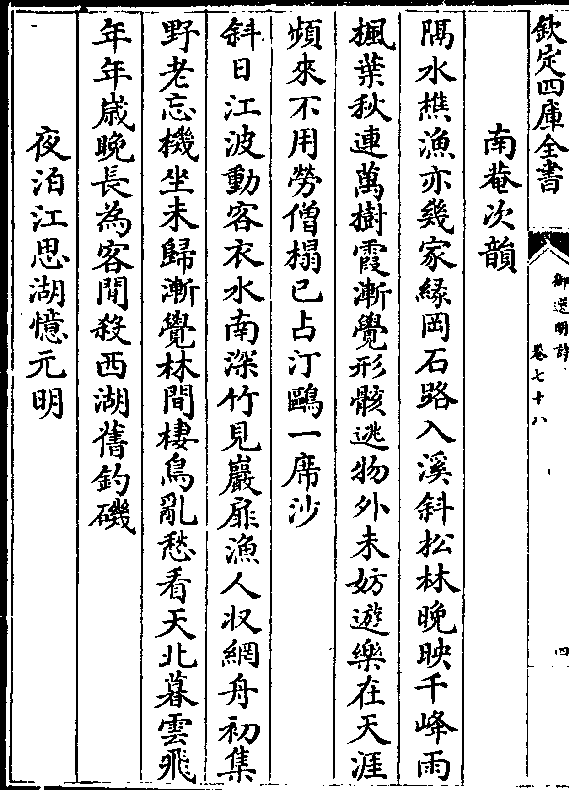 欽定四庫全書
御選明詩
卷七十八
四
南菴次韻
隔水樵漁亦幾家緣岡石路入溪斜松林晚映千峰雨
楓葉秋連萬樹霞漸覺形骸逃物外未妨遊樂在天涯
頻來不用勞僧榻已占汀鷗一席沙
斜日江波動客衣水南深竹見巖扉漁人収網舟初集
野老忘機坐未歸漸覺林間棲鳥亂愁看天北暮雲飛
年年嵗晚長為客閒殺西湖舊釣磯
夜泊江思湖憶元明